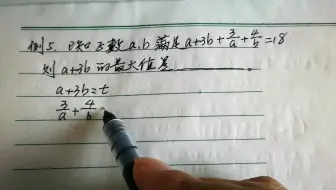 例5. 已知正数a.b满足a+3b+3/a+4/b=18
则a+3b的最大值是________.
a+3b=t
3/a+4/b